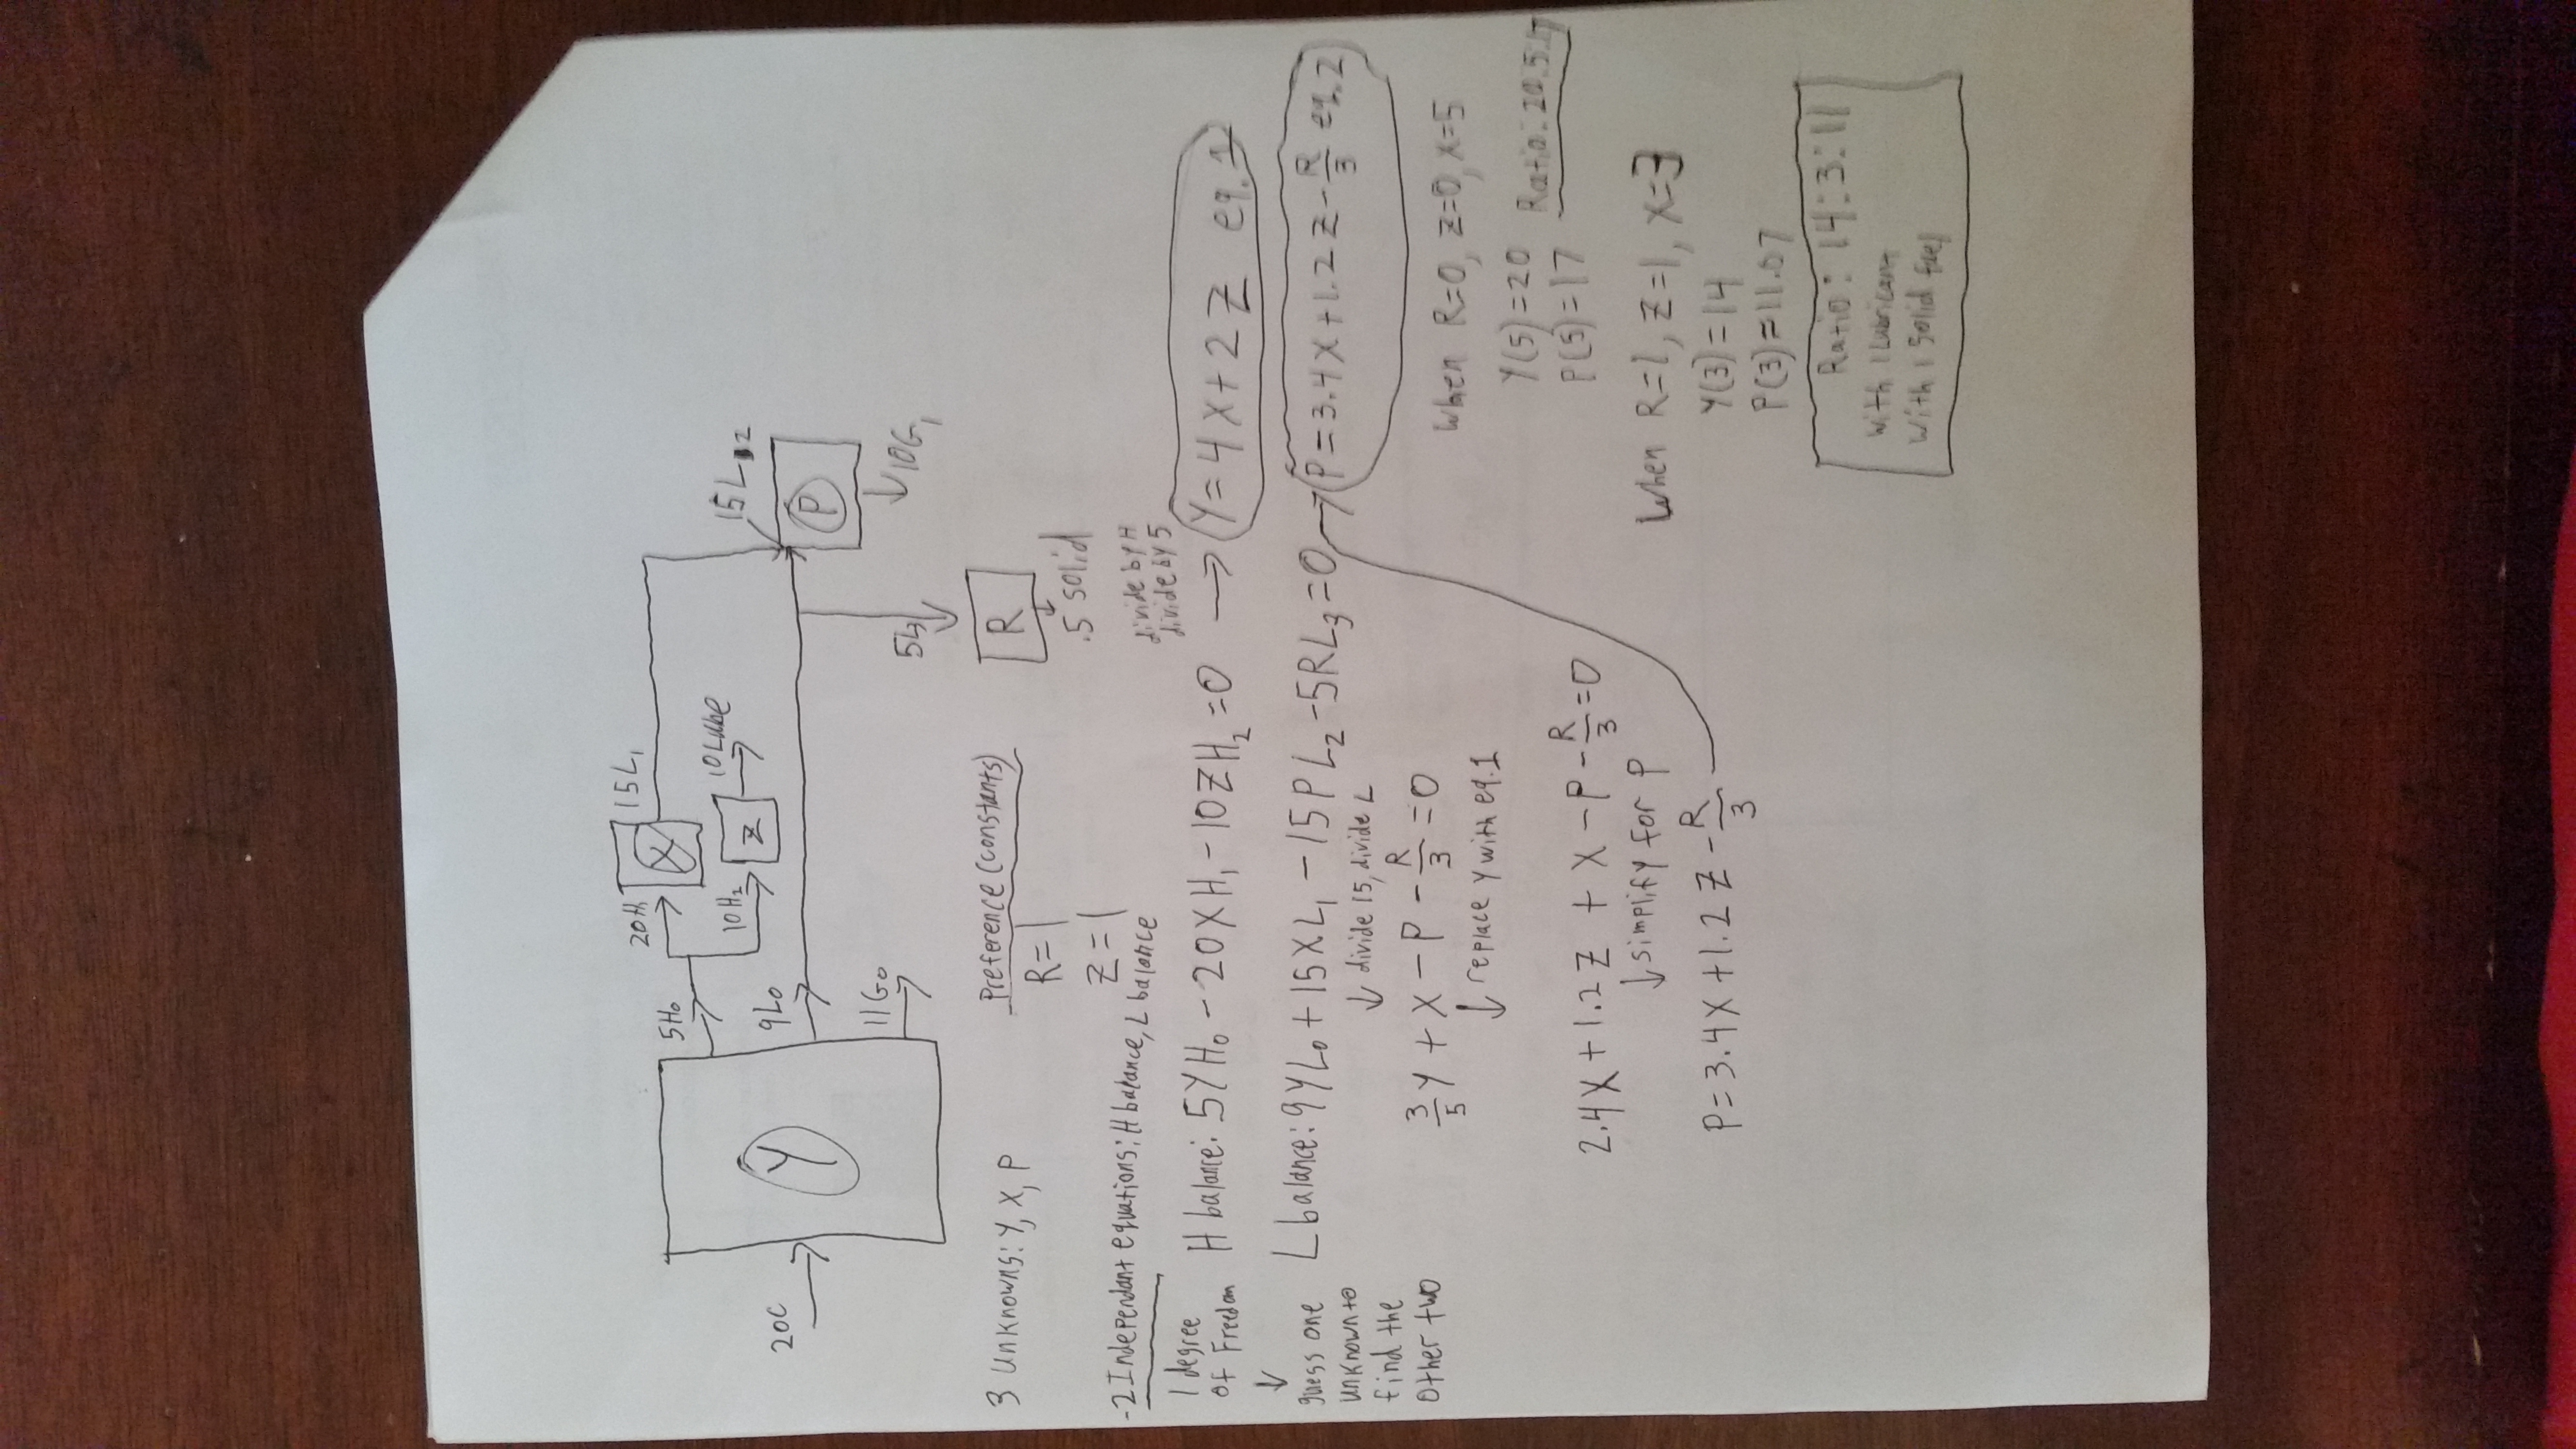 20C
Y
5H₀
9L₀
11G₀
20H₁
X
15L₁
10H₂
Z
10Lube
15L₂
P
10G₁
5L₃
R
.5 solid
3 Unknowns: Y, X, P
Preference (constants)
R=1
Z=1
-2 Independant equations: H balance, L balance
1 degree
of Freedom
↓
guess one
unknown to
find the
other two
divide by H
divide by 5
H balance: 5YH₀ - 20XH₁ - 10ZH₂ = 0 → Y = 4X + 2Z eq. 1
L balance: 9YL₀ + 15XL₁ - 15PL₂ - 5RL₃ = 0
↓ divide 15, divide L
3/5 Y + X - P - R/3 = 0
↓ replace Y with eq.1
2.4X + 1.2Z + X - P - R/3 = 0
↓ simplify for P
P = 3.4X + 1.2Z - R/3
→ P = 3.4X + 1.2Z - R/3 eq. 2
When R=0, Z=0, X=5
Y(5) = 20
P(5) = 17
Ratio: 20:5:17
When R=1, Z=1, X=3
Y(3) = 14
P(3) = 11.07
Ratio: 14:3:11
With 1 Lubricant
With 1 Solid fuel